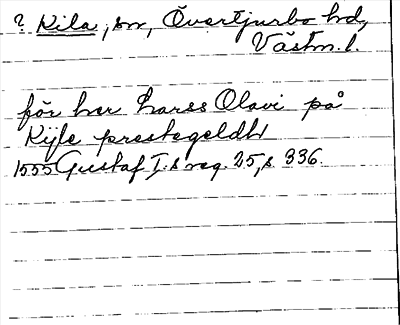 ? Kila, sn, Övertjurbo hd,
Västm. l.
för her Larss Olavi på
Kijle prestegeldh
1555 Gustaf I:s reg. 25, s. 336.